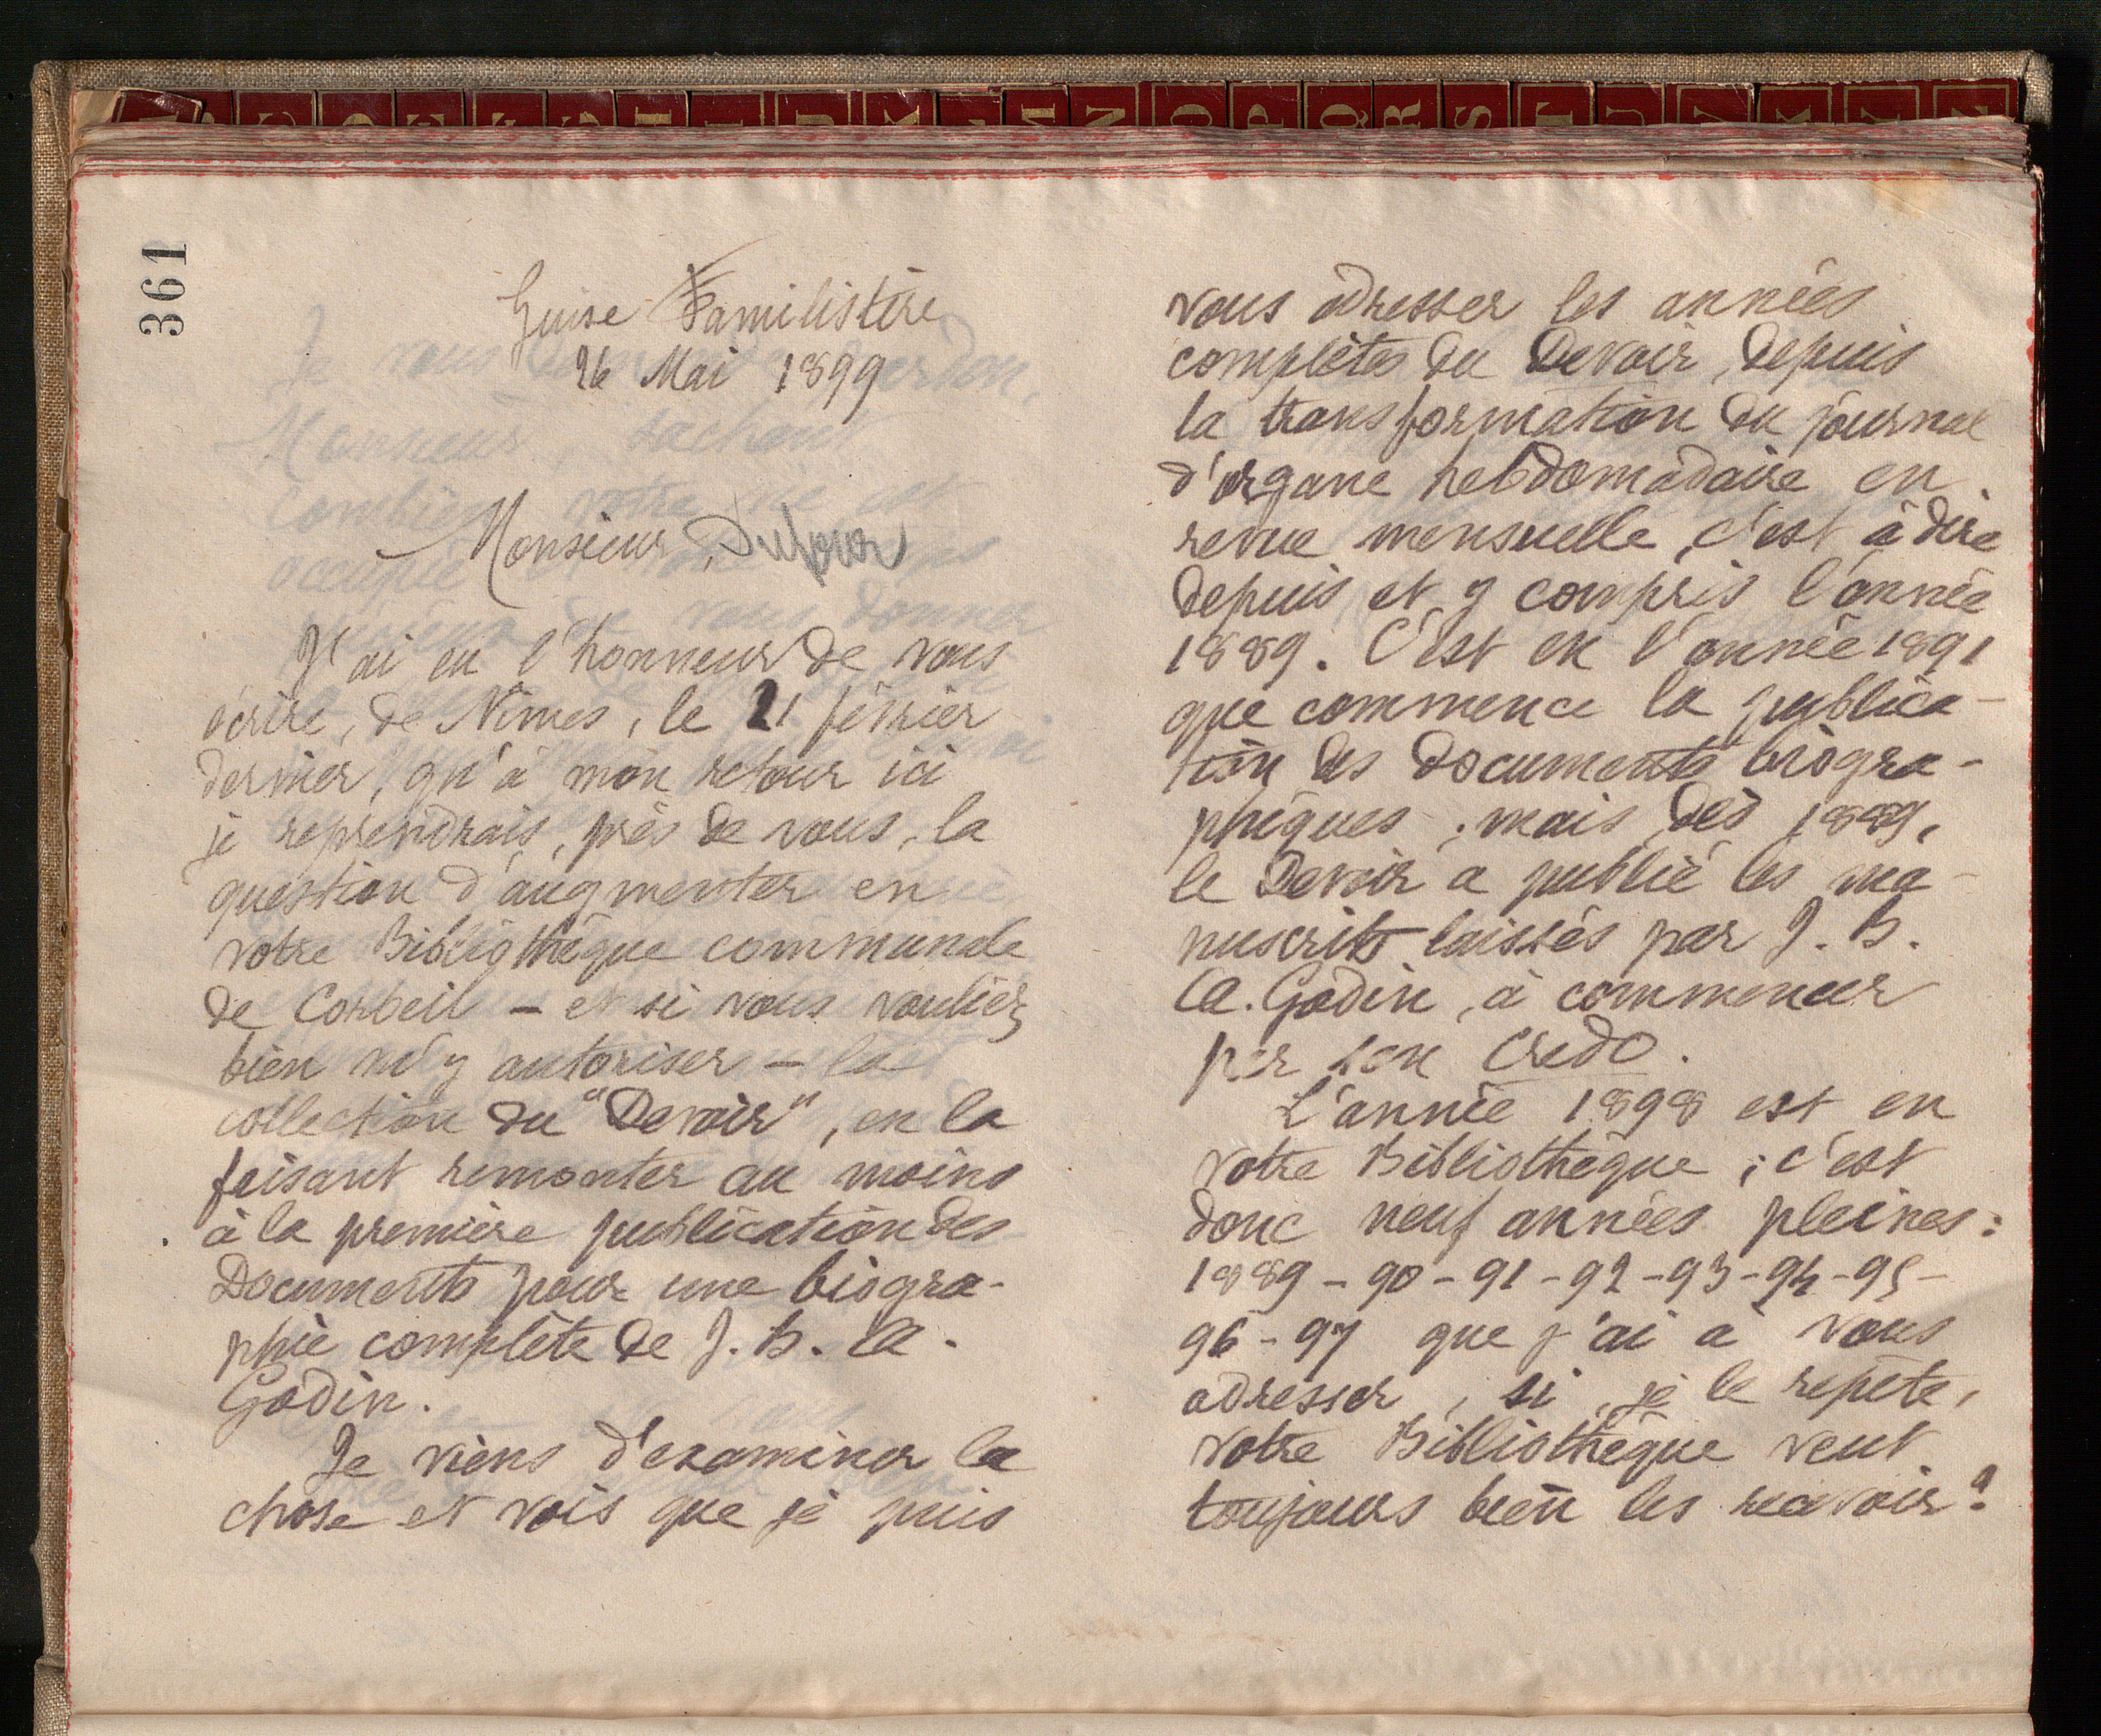 361
Guise Familistère
26 Mai 1899
Monsieur Dufour
J'ai eu l'honneur de vous
écrire, de Nîmes, le 21 février
dernier, qu'à mon retour ici
je reprendrais, près de vous, la
question d'augmenter en
votre Bibliothèque communale
de Corbeil - et si vous vouliez
bien m'y autoriser - la
collection du "Devoir", en la
faisant remonter au moins
à la première publication des
Documents pour une biogra-
phie complète de J. B. A.
Godin.
Je viens d'examiner la
chose et vois que je puis
vous adresser les années
complètes du Devoir, depuis
la transformation du journal
d'organe hebdomadaire en
revue mensuelle, c'est à dire
depuis et y compris l'année
1889. C'est en l'année 1891
que commence la publica-
tion des documents biogra-
phiques ; mais, dès 1889,
le Devoir a publié les ma-
nuscrits laissés par J. B.
A. Godin, à commencer
par son Credo.
L'année 1898 est en
votre Bibliothèque ; c'est
donc neuf années pleines :
1889 - 90 - 91 - 92 - 93 - 94 - 95 -
96 - 97 que j'ai à vous
adresser, si, je le répète,
votre Bibliothèque veut
toujours bien les recevoir ?